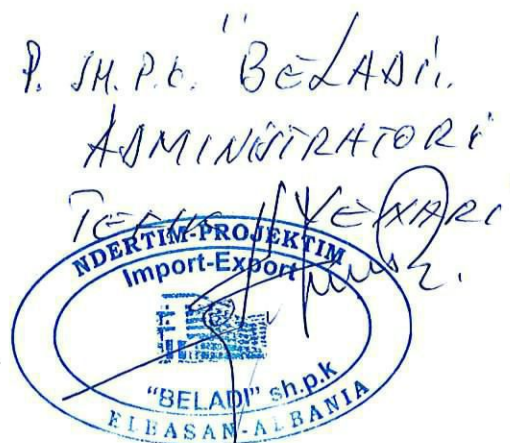 P. SH.P.K. "BELADI".
ADMINISTRATORI
NDERTIM-PROJEKTIM
Import-Export
"BELADI" sh.p.k
ELBASAN-ALBANIA